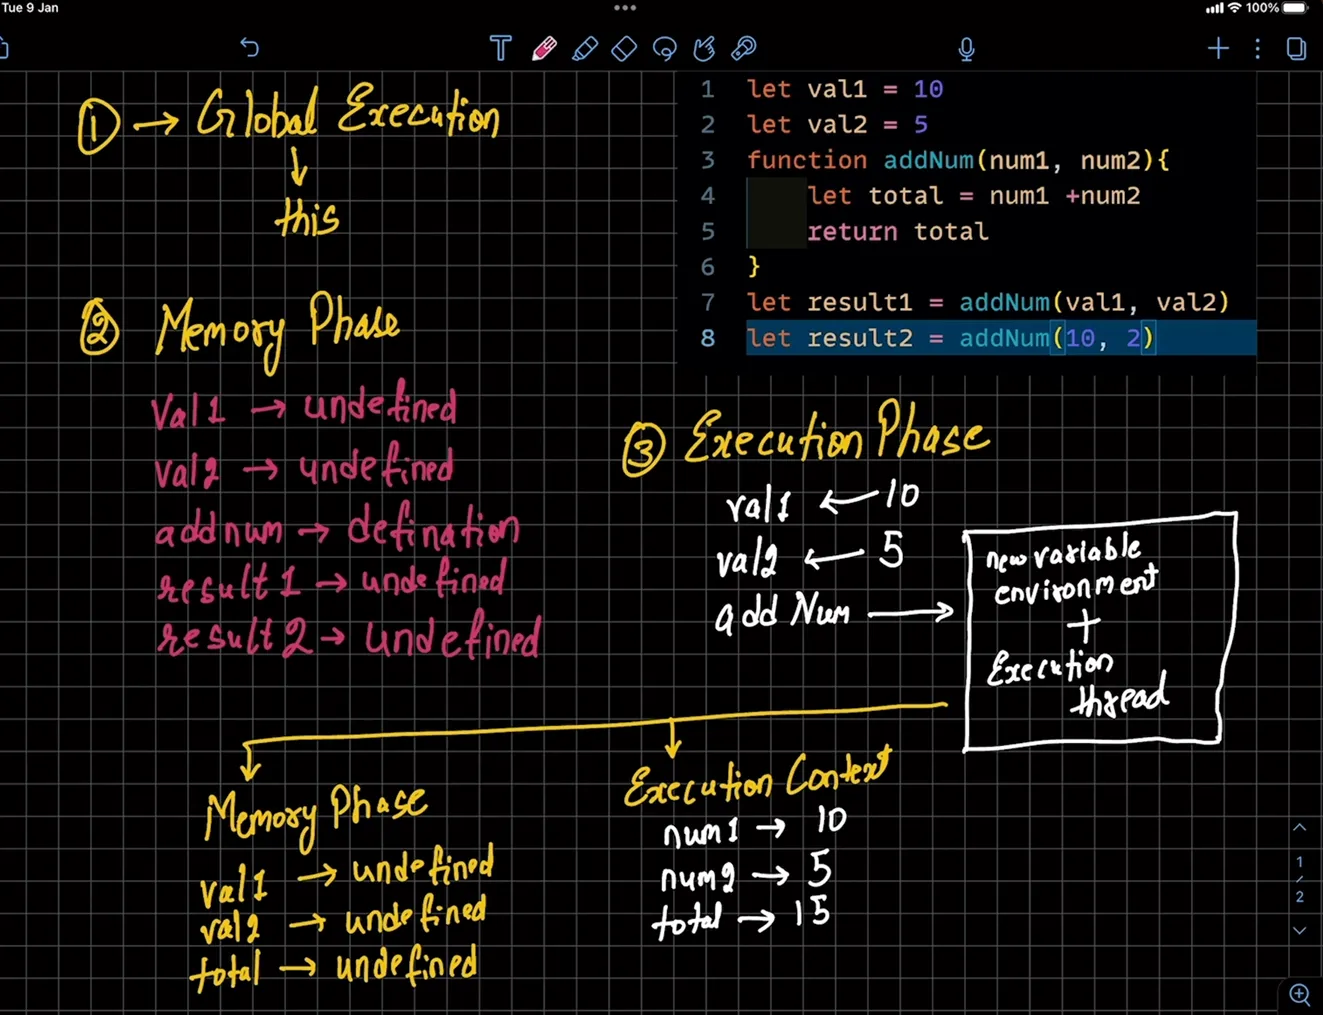 Tue 9 Jan
100%
① → Global Execution
↓
this
② Memory Phase
Val1 → undefined
val2 → undefined
addnum → defination
result1 → undefined
result2 → undefined
1 let val1 = 10
2 let val2 = 5
3 function addNum(num1, num2){
4 let total = num1 +num2
5 return total
6 }
7 let result1 = addNum(val1, val2)
8 let result2 = addNum(10, 2)
③ Execution Phase
val1 ← 10
val2 ← 5
add Num →
new variable
environment
+
Execution
thread
Memory Phase
val1 → undefined
val2 → undefined
total → undefined
Execution Context
num1 → 10
num2 → 5
total → 15
1
/
2